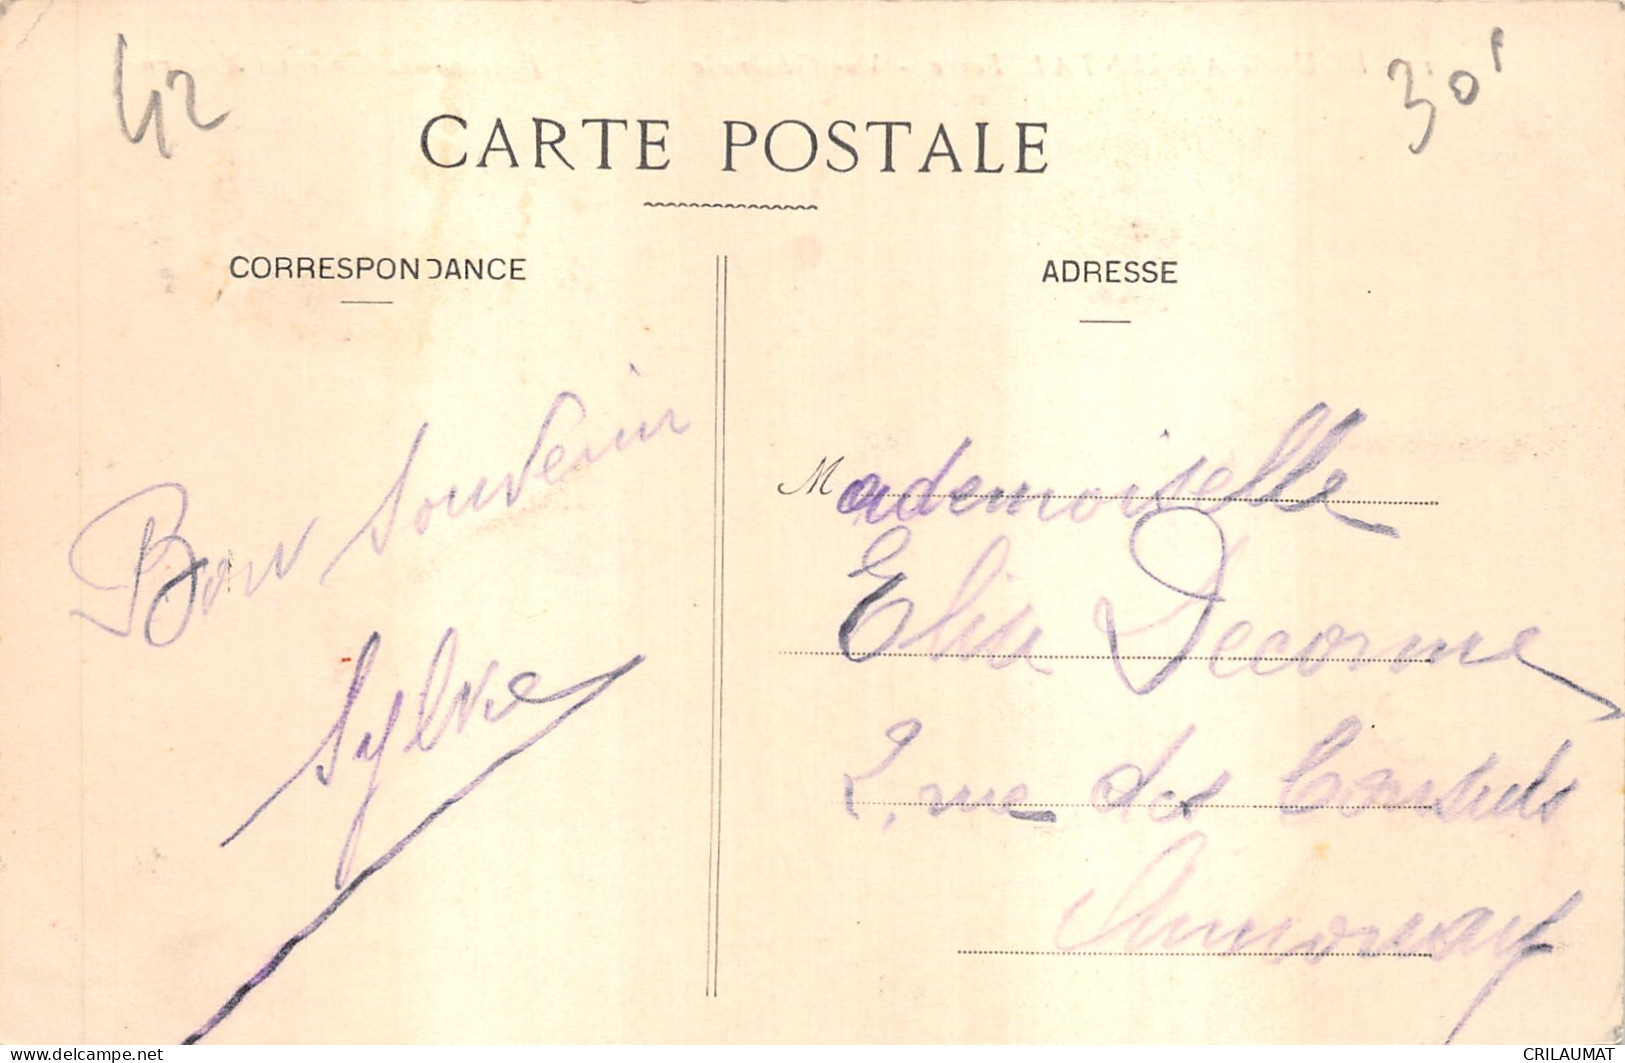 42
30'
CARTE POSTALE
CORRESPONDANCE
ADRESSE
Bon souvenir
Sylvie
Mademoiselle
Elise Decorme
2, rue des Consuls
Annonay
www.delcampe.net
CRILAUMAT